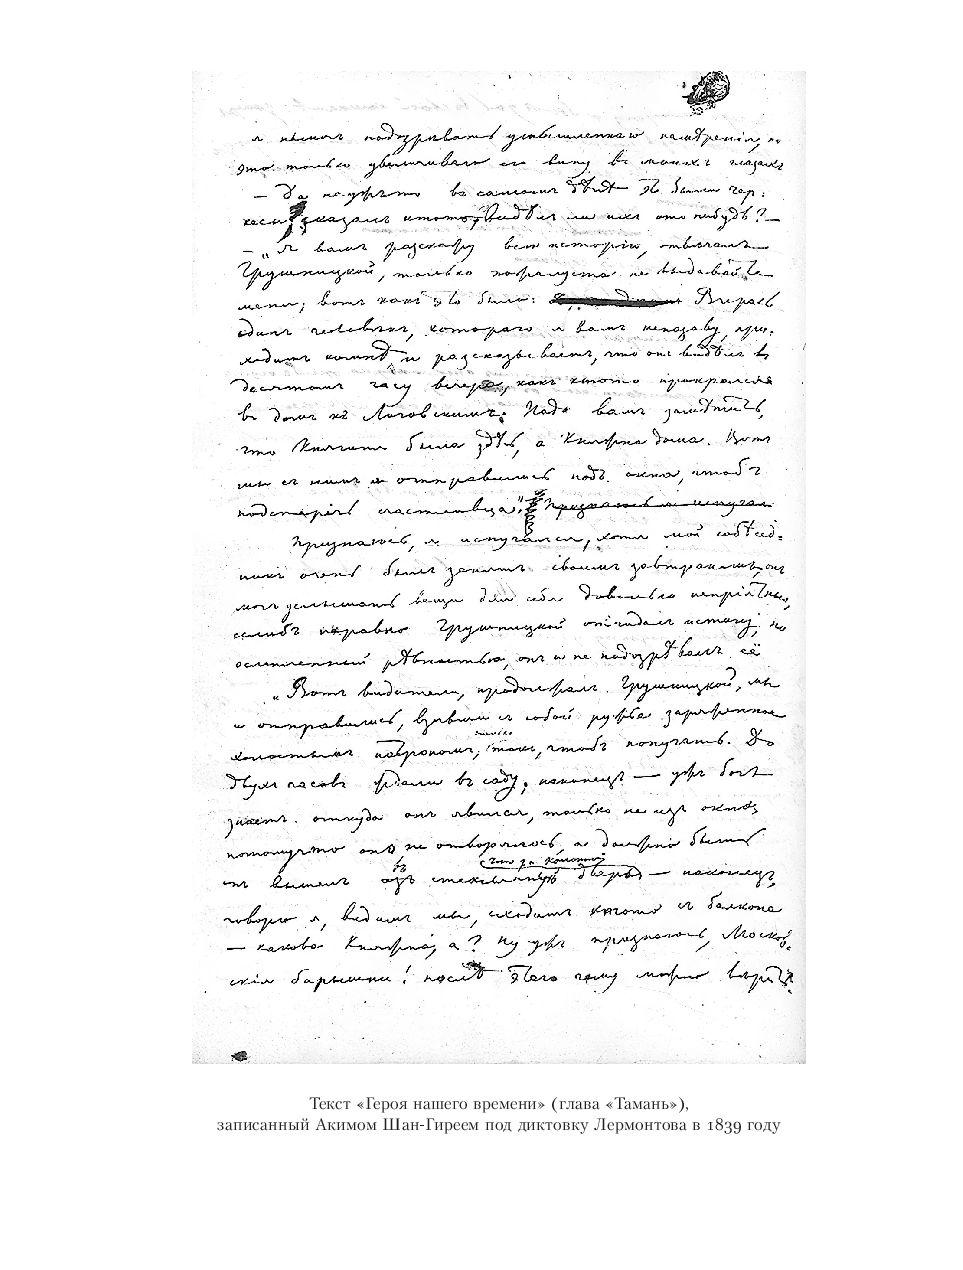 я началъ подозрѣвать умышленнаго намѣренія, но
это только увеличивало его вину въ моихъ глазахъ
— Да неужьто въ самомъ дѣлѣ это были чер-
кесы, сказалъ ктото, видѣлъ ли ихъ кто нибудь? —
— „Я вамъ разскажу всю исторію, отвѣчалъ
Грушницкой, только пожалуста не выдавайте
меня; вотъ какъ это было: Вчерась
одинъ человѣкъ, котораго я вамъ неназову, при-
ходитъ комнѣ, и разсказываетъ, что онъ видѣлъ въ
десятомъ часу вечера, какъ ктото прокрался
въ домъ къ Лиговскимъ. Надо вамъ замѣтить,
что Княгиня была здѣсь, а Княжна дома. Вотъ
мы съ нимъ и отправились подъ окна, чтобъ
подстеречь счастливца." Признаюсь я испугал
Признаюсь, я испугался, хотя мой собесѣд-
никъ очень былъ занятъ своимъ завтракомъ, онъ
могъ услышать вещи для себя довольно непріятныя,
еслибъ неравно Грушницкой отгадалъ истину, но
ослепленный ревностью, онъ и не подозрѣвалъ её
„Вотъ видители, продолжалъ Грушницкой, мы
и отправились, взявши съ собой ружье заряженное
холостымъ патрономъ, только такъ, чтобъ попугать. До
двухъ часовъ ждали въ саду, наконецъ — ужъ богъ
знаетъ откуда онъ явился, только не изъ окна,
потомучто оно не отворялось, а должно быть
онъ вышелъ въ стеклянную дверь, что за колонной — наконецъ,
говорю я, видимъ мы, сходитъ ктото съ балкона
— какова Княжна, а? Ну ужъ признаюсь, Москов-
скія барышни! послѣ этого чему можно вѣрить?
Текст «Героя нашего времени» (глава «Тамань»),
записанный Акимом Шан-Гиреем под диктовку Лермонтова в 1839 году